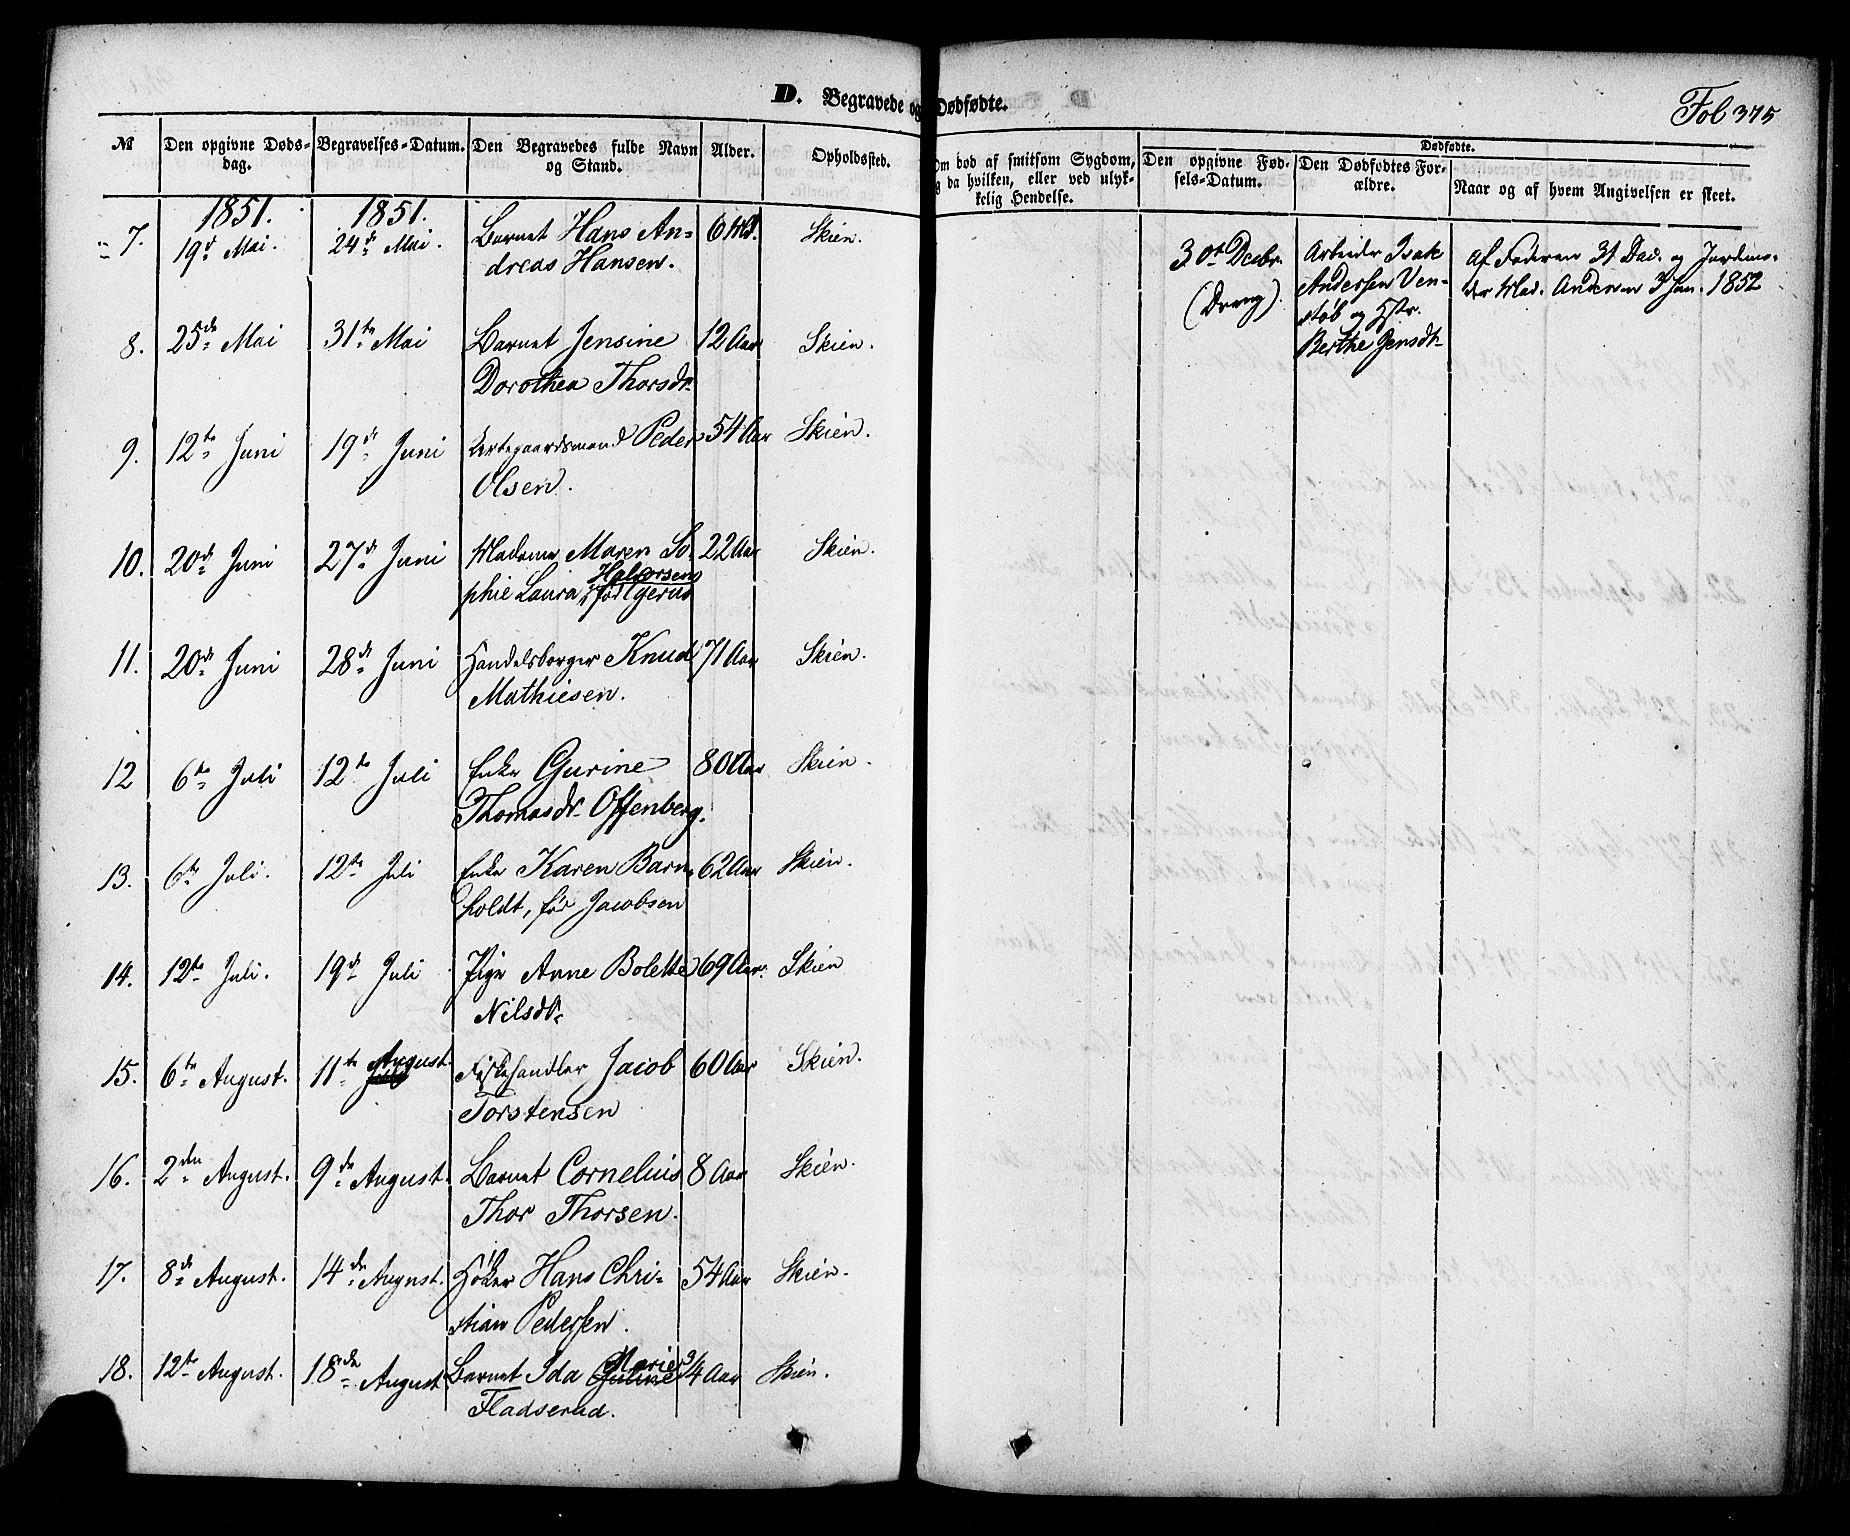 D. Begravede og Dødfødte.
Fol 375
№ Den opgivne Døds- Begravelses-Datum. Den Begravedes fulde Navn Alder. Opholdssted. Om død af smitsom Sygdom, Den opgivne Fød- Den Dødfødtes For- Dødfødte.
dag. og Stand. og da hvilken, eller ved ulyk- sels-Datum. ældre. Naar og af hvem Angivelsen er skeet.
kelig Hendelse.
1851. 1851.
7. 19d Mai. 24de Mai. Barnet Hans An- 6 Md. Skien.
dreas Hansen.
8. 25de Mai 31te Mai Barnet Jensine 12 Aar Skien.
Dorothea Thorsdr
9. 12te Juni 19de Juni Peder 54 Aar Skien.
Olsen.
10. 20de Juni 27de Juni Madame Maren So- 22 Aar Skien.
Halvorsen
phie Laura, født Gerud
11. 20de Juni 28de Juni Handelsborger Knud 71 Aar Skien.
Mathiesen.
12 6te Juli 12te Juli Enke Gurine 80 Aar Skien.
Thomasdr Offenberg.
13. 6te Juli. 12te Juli Enke Karen Barn- 62 Aar Skien.
holdt, før Jacobsen
14. 12te Juli. 19de Juli Pige Anne Bolette 69 Aar. Skien
Nilsdr
15. 6te August. 11te August. Fiskehandler Jacob 60 Aar Skien.
Torstensen
16. 2den August. 9de August. Barnet Cornelius 8 Aar Skien.
Thor Thorsen.
17. 8de August. 14de August. Høker Hans Chri- 54 Aar Skien.
stian Pedersen.
Marie
18. 12te August. 18de August Barnet Ida Guline 3/4 Aar Skien.
Fladserud.
30t Decbr. Arbeider Isak Af Faderen 31 Dec. og Jordmo-
(Dreng). Andersen Ven- der Mad. Andersen 3 Jan. 1852
støb og Hstr.
Berthe Jensdtr